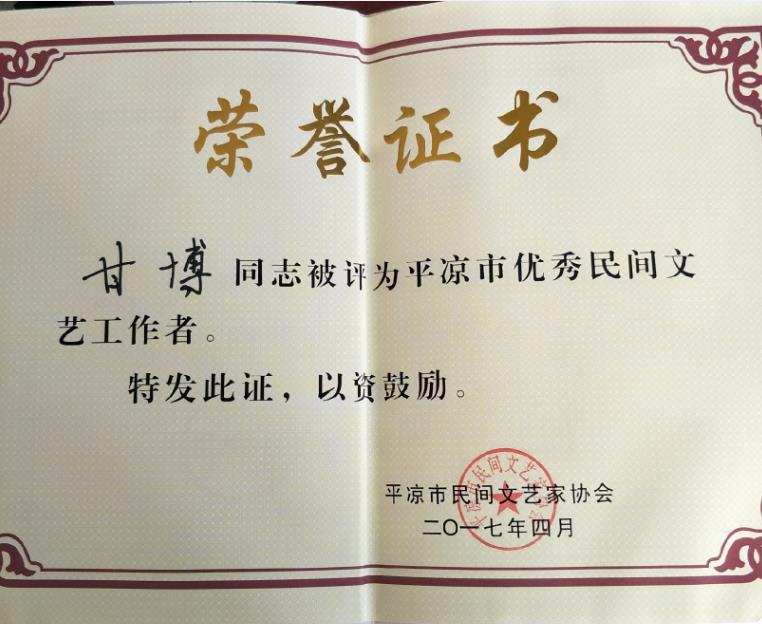 荣誉证书
甘博 同志被评为平凉市优秀民间文
艺工作者。
特发此证，以资鼓励。
平凉市民间文艺家协会
二〇一七年四月
平凉市民间文艺家协会